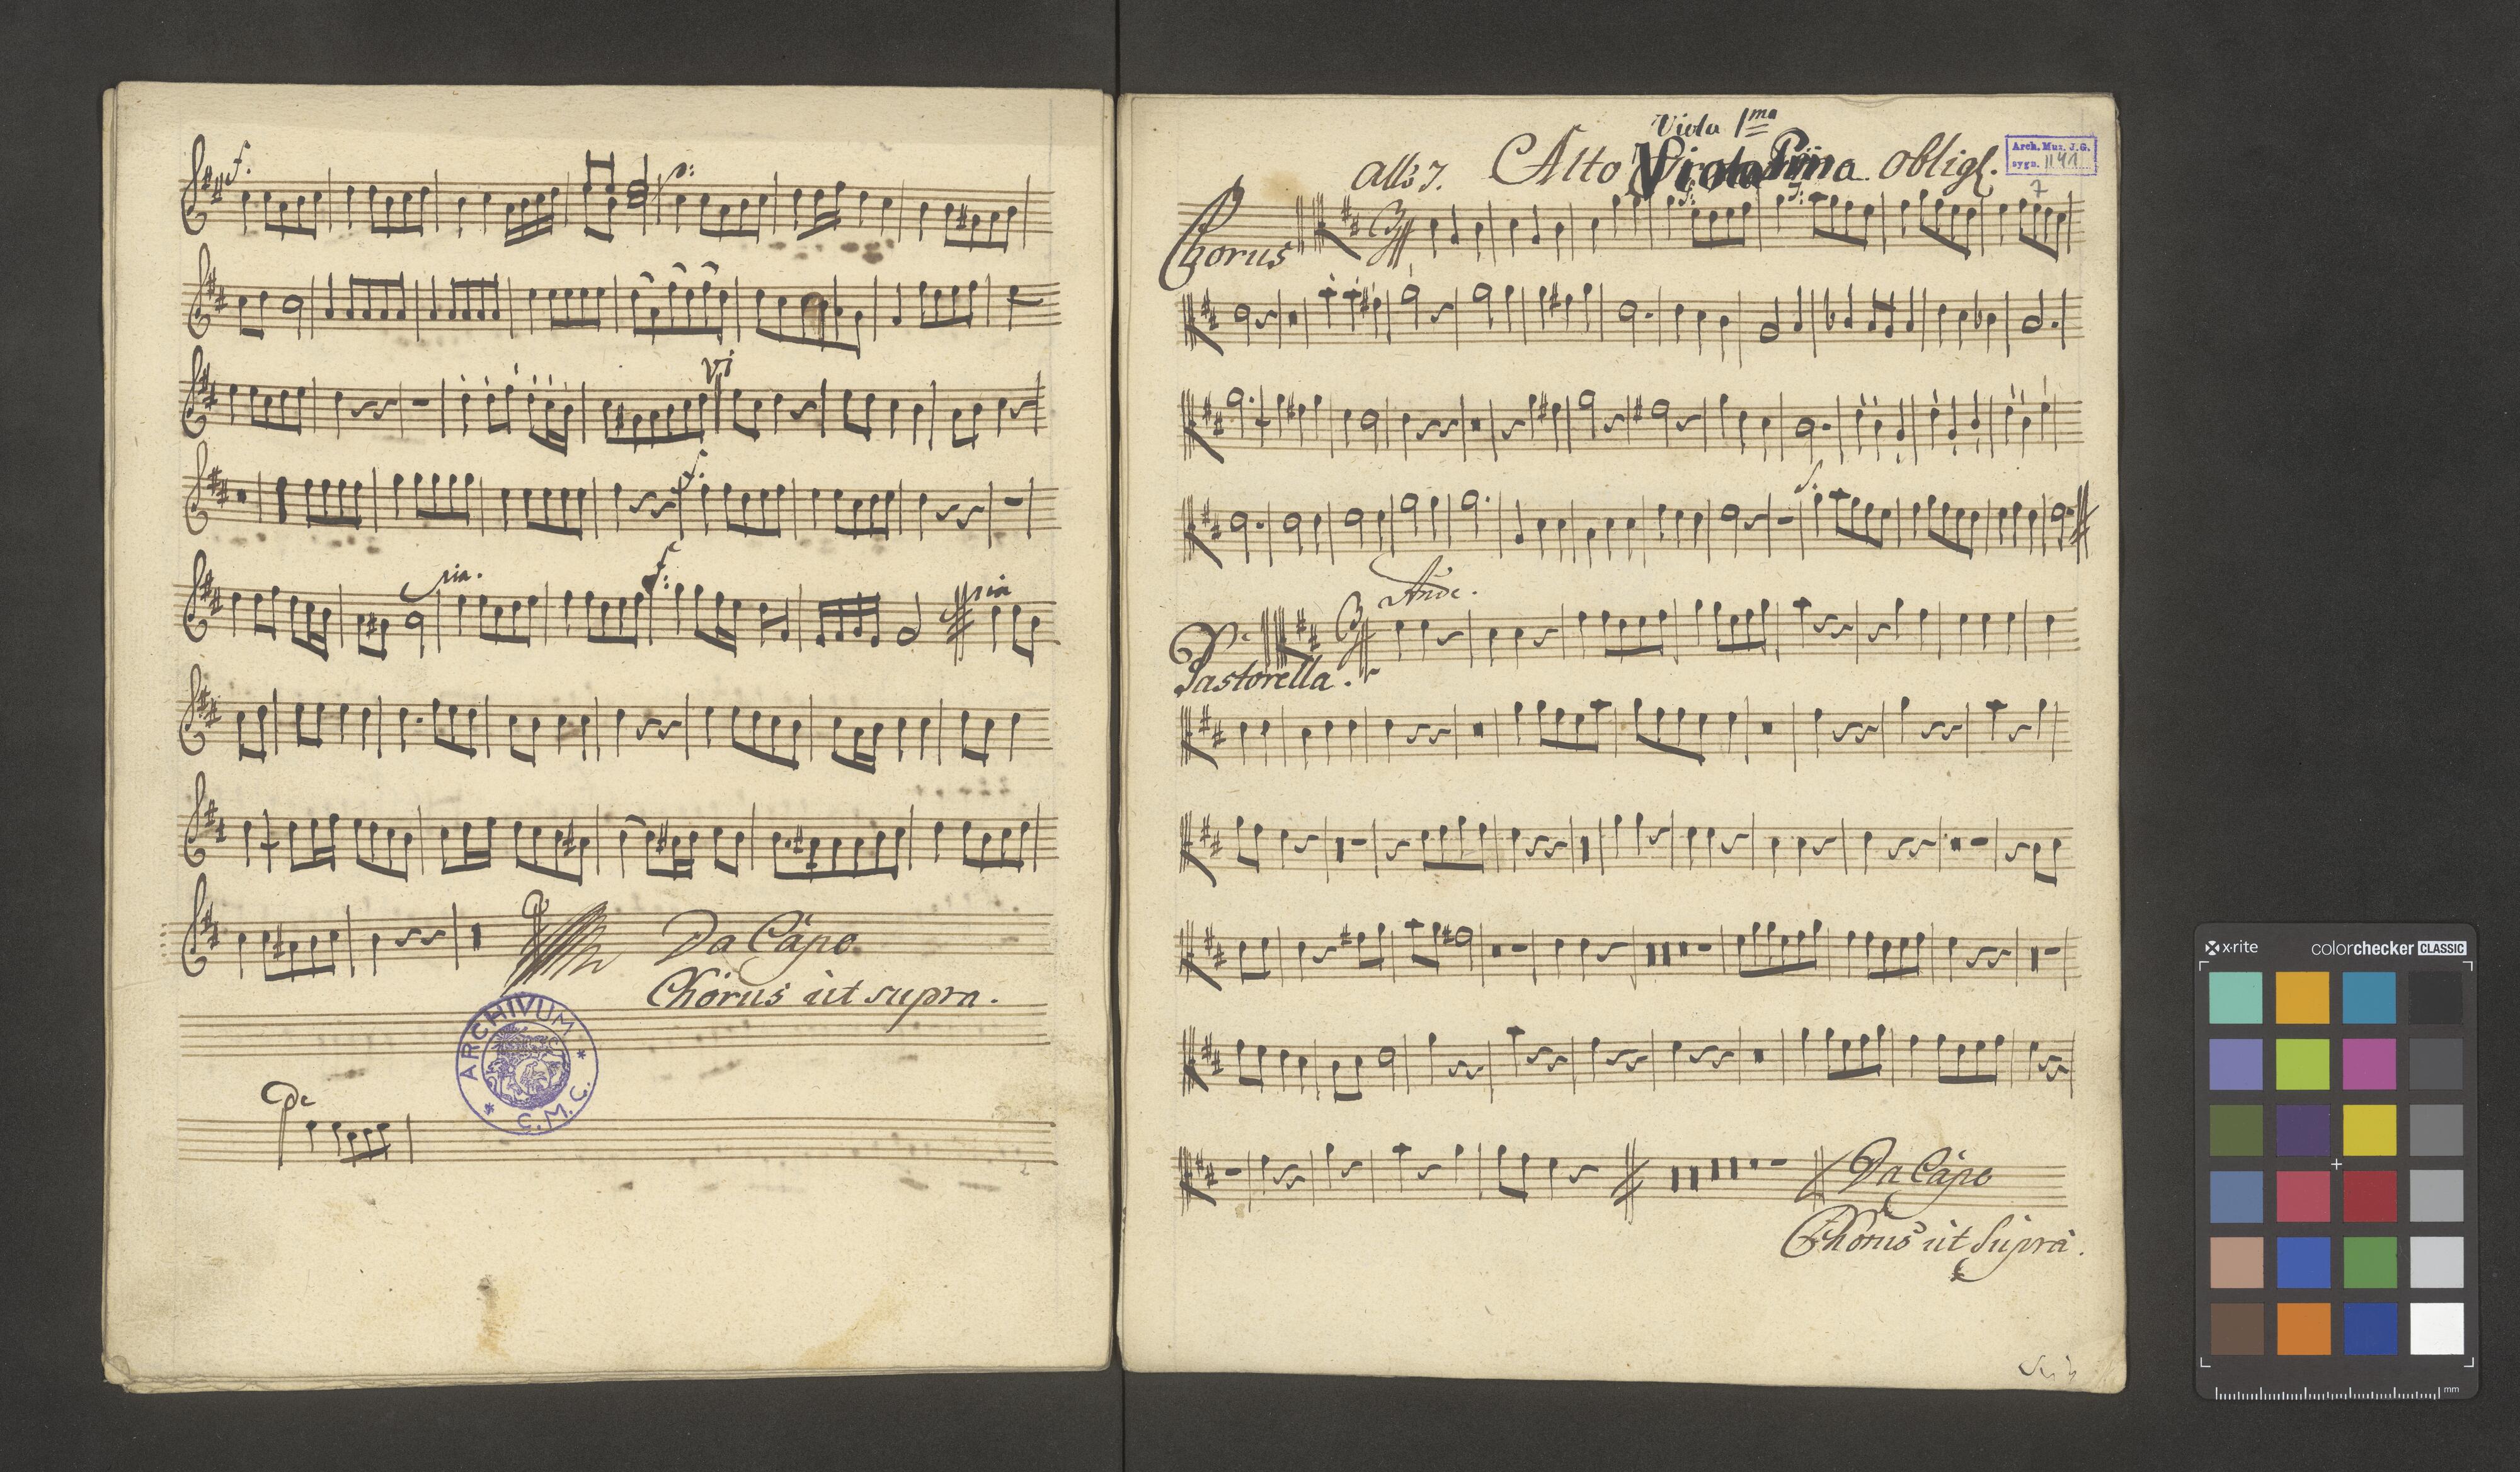 f.
p:
vi
f.
pia.
f:
pia
Da Capo
Chorus ut supra.
ARCHIVUM
* C.M.C. *
Viola 1ma
Alto Viola Prima obligl.
Arch. Muz. J.G.
sygn. II 41
7
Chorus
f.
Ande.
Pastorella.
Da Capo
Chorus ut Supra.
x·rite colorchecker CLASSIC
mm